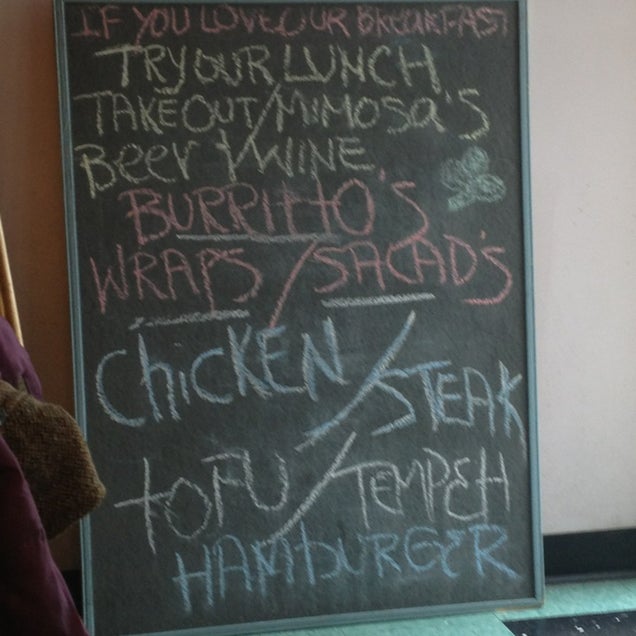 IF YOU LOVE OUR BREAKFAST
TRY OUR LUNCH
TAKEOUT/MIMOSA'S
BEER + WINE
BURRITO'S
WRAPS/SALAD'S
CHICKEN/STEAK
TOFU/TEMPEH
HAMBURGER